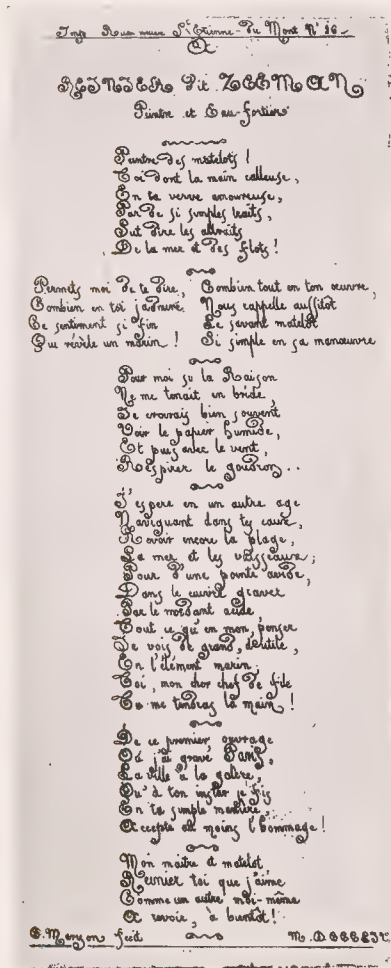 Imp. Rue neuve St Etienne-du-Mont N° 26
A
REINIER dit ZEEMAN
Peintre et Eau-fortier
Peintre des matelots !
Toi dont la main calleuse,
En ta verve amoureuse,
Par de si simples traits,
Sut dire les attraits
De la mer et des flots !
Permets moi de te dire,
Combien en toi j'admire
Ce sentiment si fin
Qui révèle un marin !
Combien tout en ton œuvre,
Nous rappelle aussitot
Le savant matelot
Si simple en sa manœuvre
Pour moi si la Raison
Ne me tenait en bride,
Je croirais bien souvent
Voir le papier humide,
Et puis avec le vent,
Respirer le goudron..
J'espere en un autre age
Naviguant dans tes eaux,
Revoir encore la plage,
La mer et les vaisseaux;
Pour d'une pointe avide,
Dans le cuivre graver
Par le mordant acide
Tout ce qu'en mon penser
Je vois de grand, d'utile,
En l'élément marin;
Toi, mon cher chef de file
Tu me tendras la main !
De ce premier ouvrage
Où j'ai gravé Paris,
La ville à la galère,
Qu'à ton instar je fis
En ta simple manière,
Accepte au moins l'hommage !
Mon maitre et matelot
Reinier toi que j'aime
Comme un autre moi-même
Au revoir, à bientôt !
C. Meryon fecit
M. DCCCLIV